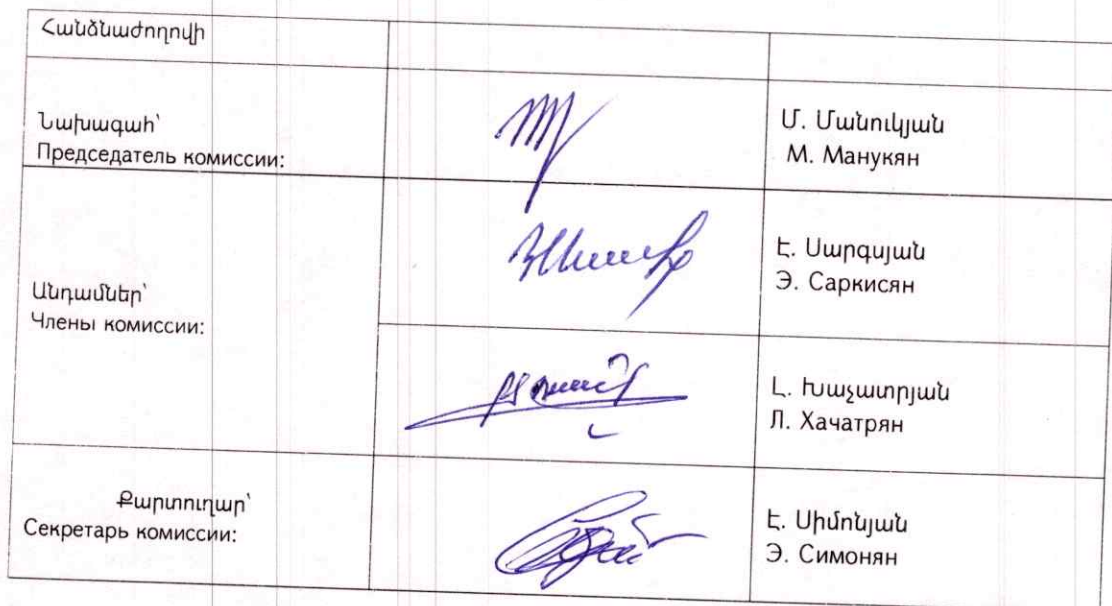 Հանձնաժողովի
Նախագահ՝
Председатель комиссии:
Մ. Մանուկյան
М. Манукян
Անդամներ՝
Члены комиссии:
Է. Սարգսյան
Э. Саркисян
Լ. Խաչատրյան
Л. Хачатрян
Քարտուղար՝
Секретарь комиссии:
Է. Սիմոնյան
Э. Симонян